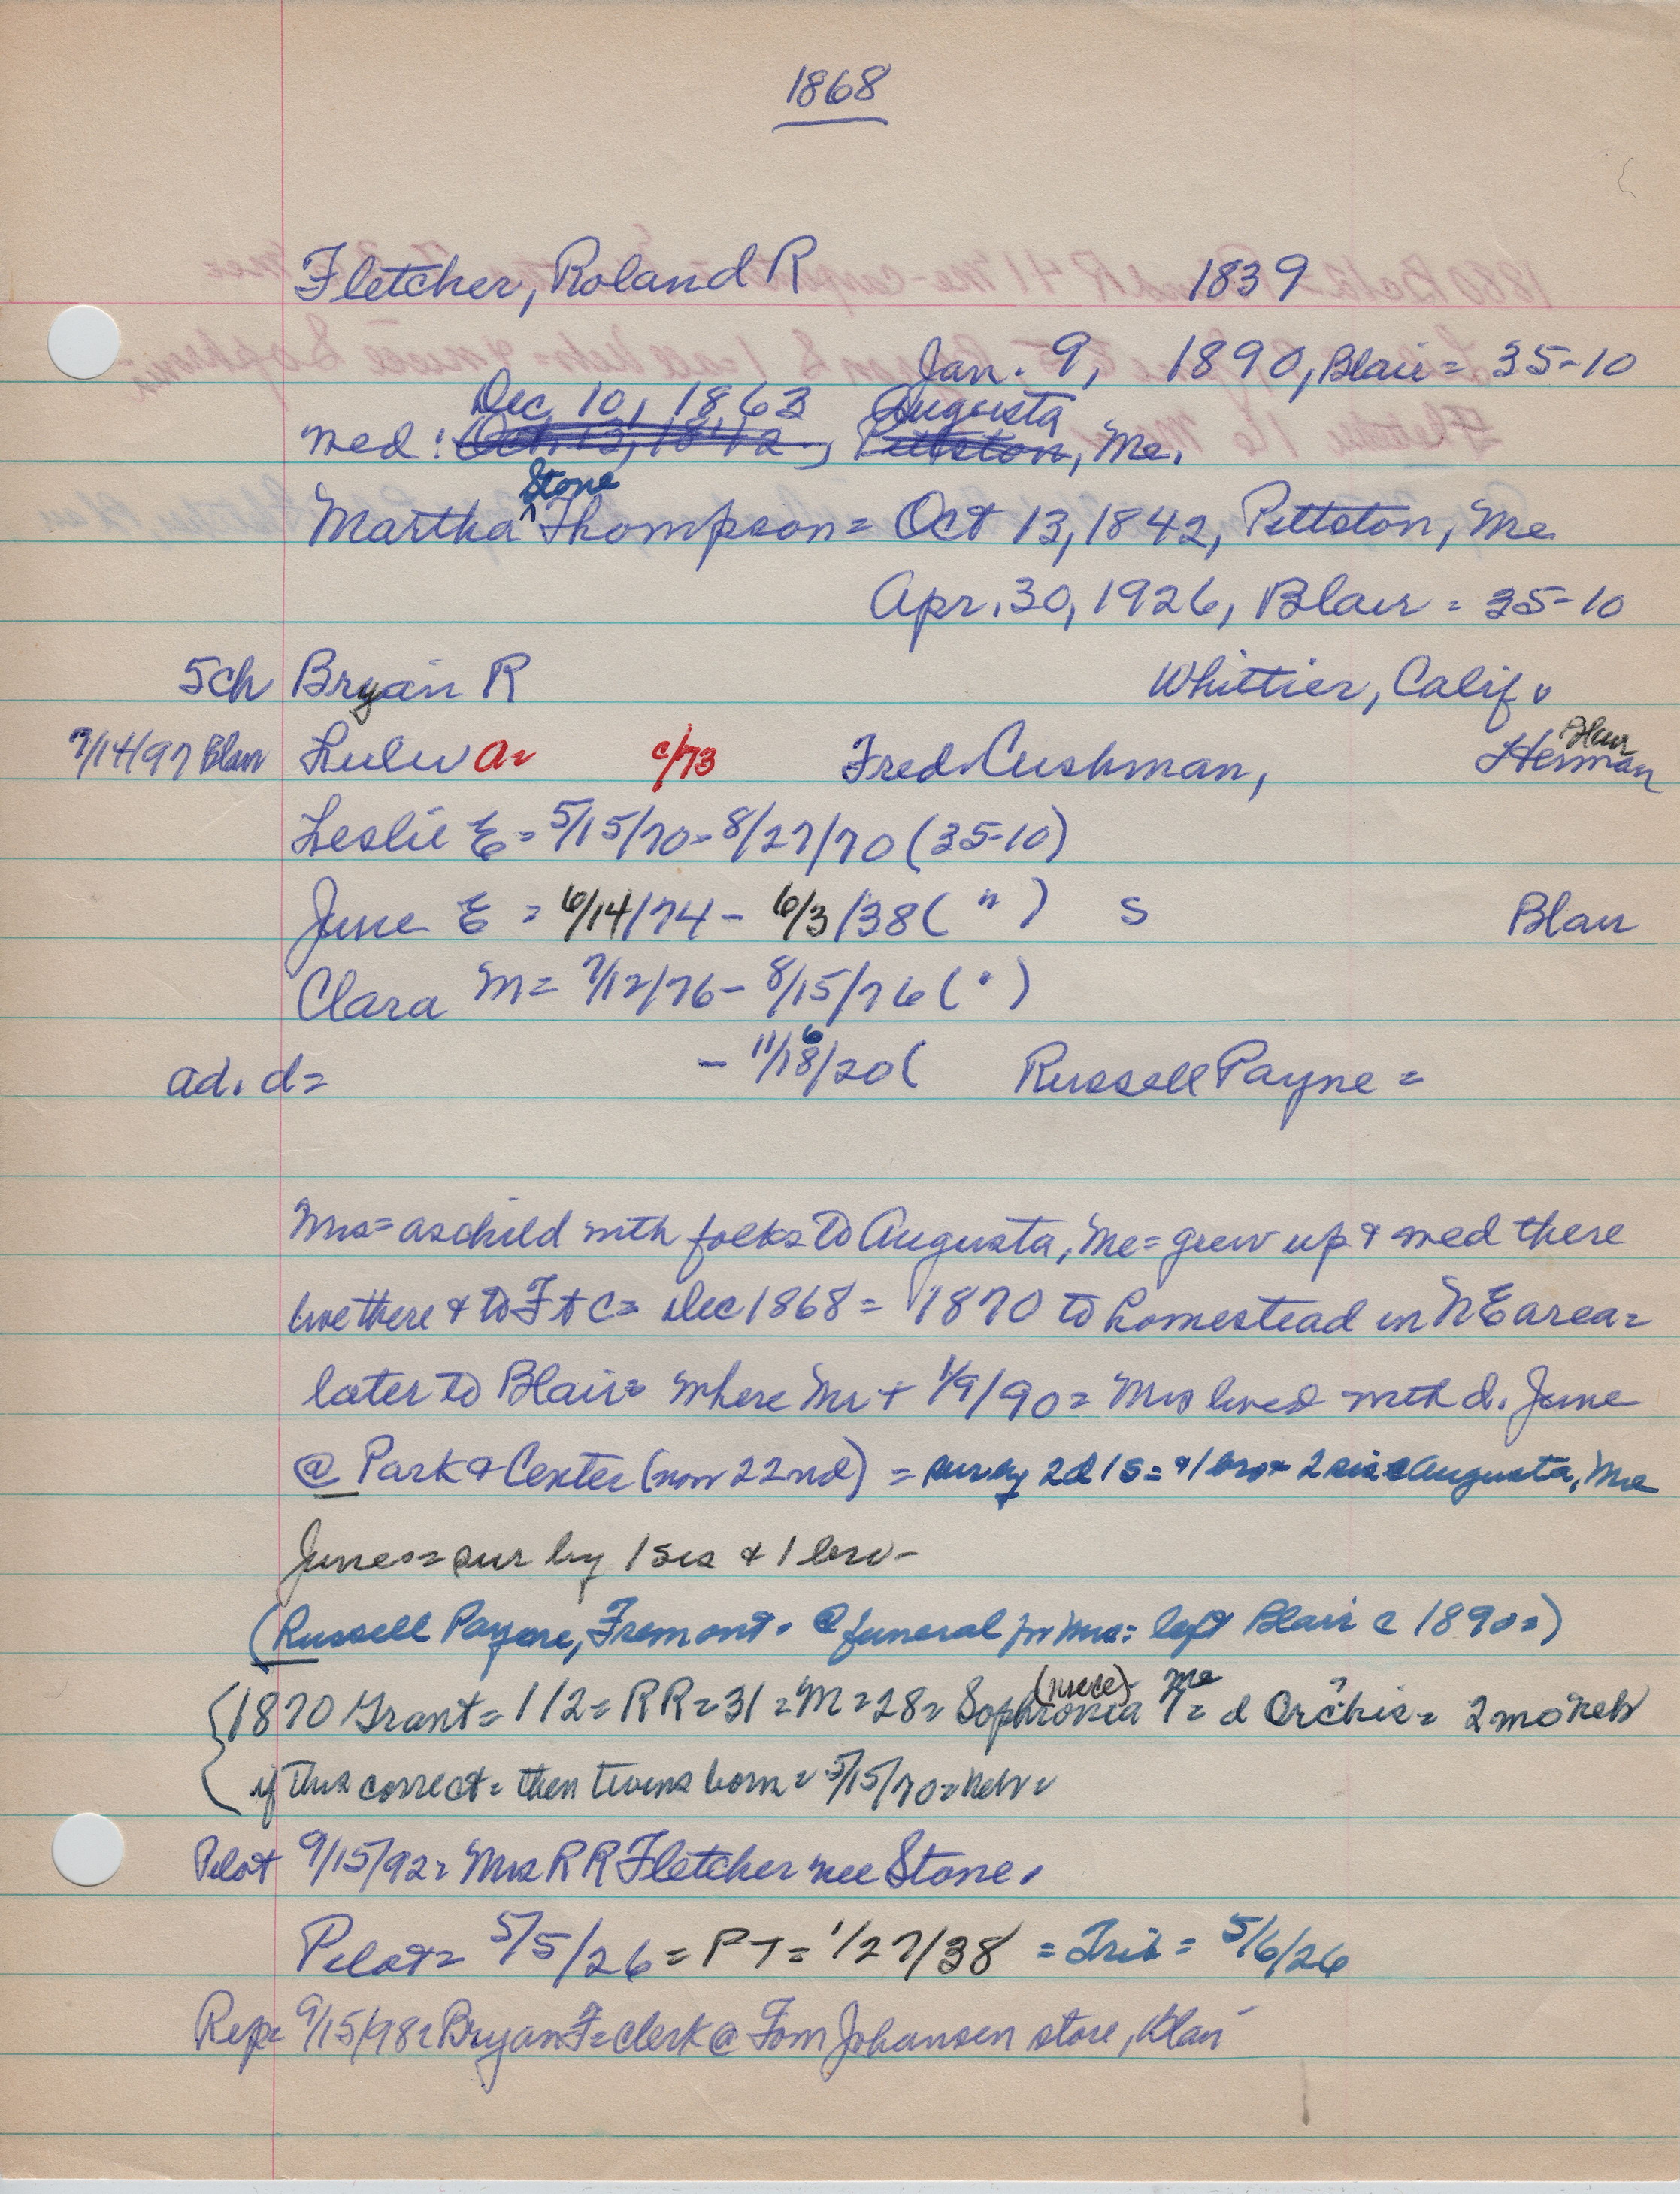 1868
Fletcher, Roland R 1839
Jan. 9, 1890, Blair = 35-10
Dec, 10, 1863 Augusta
med: Oct. 13, 1842, Pittston, Me.
Stone
Martha ^ Thompson = Oct 13, 1842, Pittston, Me
Apr. 30, 1926, Blair = 35-10
5ch Bryan R Whittier, Calif.
Blair
7/14/97 Blair Lulu A= c/73 Fred Cushman, Herman
Leslie E = 5/15/70 - 8/27/70 (35-10)
June E = 6/14/74 - 6/3/38 ( " ) S Blair
Clara M = 7/12/76 - 8/15/76 ( " )
6
ad. d= - 11/18/20 ( Russell Payne =
Mrs = as child with folks to Augusta, Me = grew up & med there
live there & to Ft C = Dec 1868 = 1870 to homestead in NE area =
later to Blair = where Mr + 1/9/90 = Mrs lived with d. June
@ Park & Center (now 22nd) = sur by 2d 1s = & 1 bro & 2 sis @ Augusta, Me
June = sur by 1 sis & 1 bro -
(Russell Payne, Fremont = @ funeral for Mrs = left Blair c 1890 =)
(niece) Me ?
{1870 Grant = 1/2 = RR = 31 = M = 28 = Sophronia 7 = d Orchis = 2 mo Neb
if this correct = then twins born = 5/15/70 = Neb =
Pilot 9/15/92 = Mrs R R Fletcher nee Stone.
Pilot = 5/5/26 = PT = 1/27/38 = Trib = 5/6/26
Rep = 9/15/98 = Bryan F = clerk @ Tom Johansen store, Blair